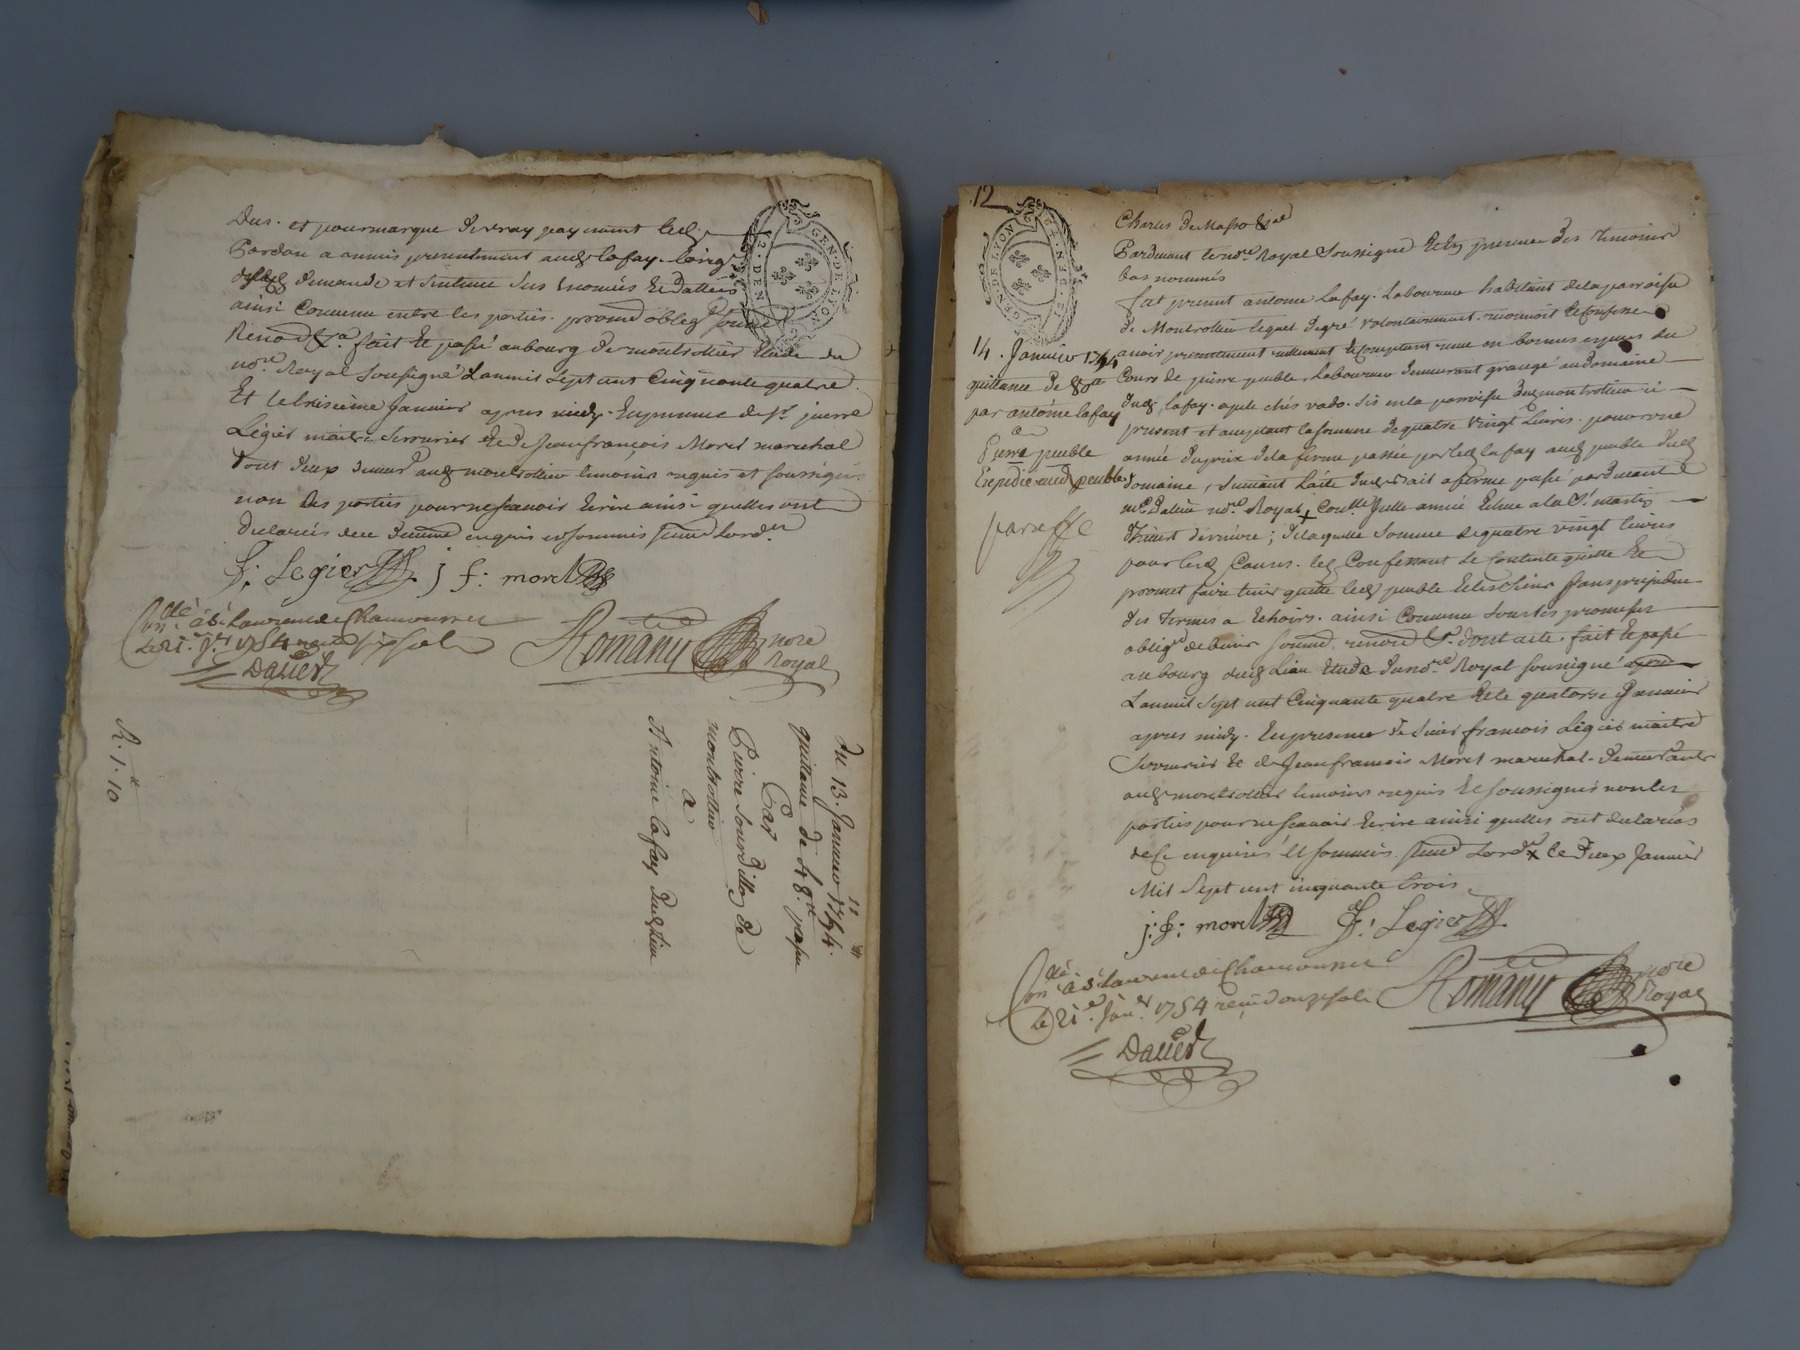 Dus. et pour marque de vray payement led.
Pardon a annis presentement aud. lafay. Lorig.
desd. demande et sentence sus enoncés Et dattées
ainsi Convenu entre les parties. promd oblig soumd
Renond &a. fait Et passé au bourg de montrottier Etude du
nore. Royal soussigné L'an mil sept cent Cinquante quatre
Et le treisième Janvier apres midy. En presence de sr. pierre
Légier maitre serrurier Et de Jean françois Morel marechal
tout deux demeurt aud. montrottier temoins requis et soussignés
non les parties pour ne scavoir Ecrire ainsi quelles ont
declarés de ce enquis et sommés suivt Lordce
F: Legier j f: morel
Conlé. à St Laurent de Chamousset
le 21e. Jer. 1754 reçu six sols
Daller
Romany nore
Royal
Du 13. Janvier 1754.
11
quittance de 48tt. passée
Par
Pierre Sourdillo de
montrottier
a
Antoine Lafay dud. lieu
R. 1. 10
12
GEN. DE LYON
GEN. DE LYON
Charles De Masso &a
Pardevant le nore. Royal Soussigné Et les presence des temoins
bas nommés
fut present antoine Lafay. Laboureur habitant de la parroisse
de Montrottier lequel de gré volontairement reconnoit Et Confesse
avoir presentement reellement Et Comptant reçue en bonnes especes du
Cours de pierre peuble, Laboureur demeurant grangé au domaine
dud. Lafay. apelé chés vado. sis en la parroisse dud. montrottier ici
present et acceptant la somme de quatre vingt Livres. pour une
année du prix de la ferme passée par led. lafay aud. peuble dud.
domaine, suivant L'acte dud. Bail a ferme passé pardevant
me. Dalier nore. Royal + Coulle. Juelle année Echue a la St. martin
D'hivert derniére; de laquelle somme de quatre vingt livres
pour lesd. Causes. led. Confessant se Contente quitte Et
promet faire tenir quitte led. peuble Et les siens sans prejudice
des termes a Echoirs. ainsi Convenu sous les promesses
obligo de biens soumd. renond &a. dont acte. fait Et passé
au bourg dud. Lieu Etude du nore. Royal soussigné
L'an mil sept cent Cinquante quatre Et le quatorse Janvier
apres midy. En presence de sieur francois Légier maitre
Serrurier Et de Jean francois Morel marechal. demeurants
aud. montrottier temoins requis Et soussignés non les
parties pour ne scavoir Ecrire ainsi quelles ont declarées
de ce enquises Et sommées. suivt Lordce + le Deux Janvier
Mil sept cent cinquante trois
j: f: morel F: Legier
Conlé. à St Laurent de Chamousset
le 21e. Janer. 1754 reçu douze sols
Daller
Romany nore
Royal
14. Janvier 1754
quittance de 80tt
par antoine lafay
a
Pierre peuble
Expedié aud. peuble
paraffe